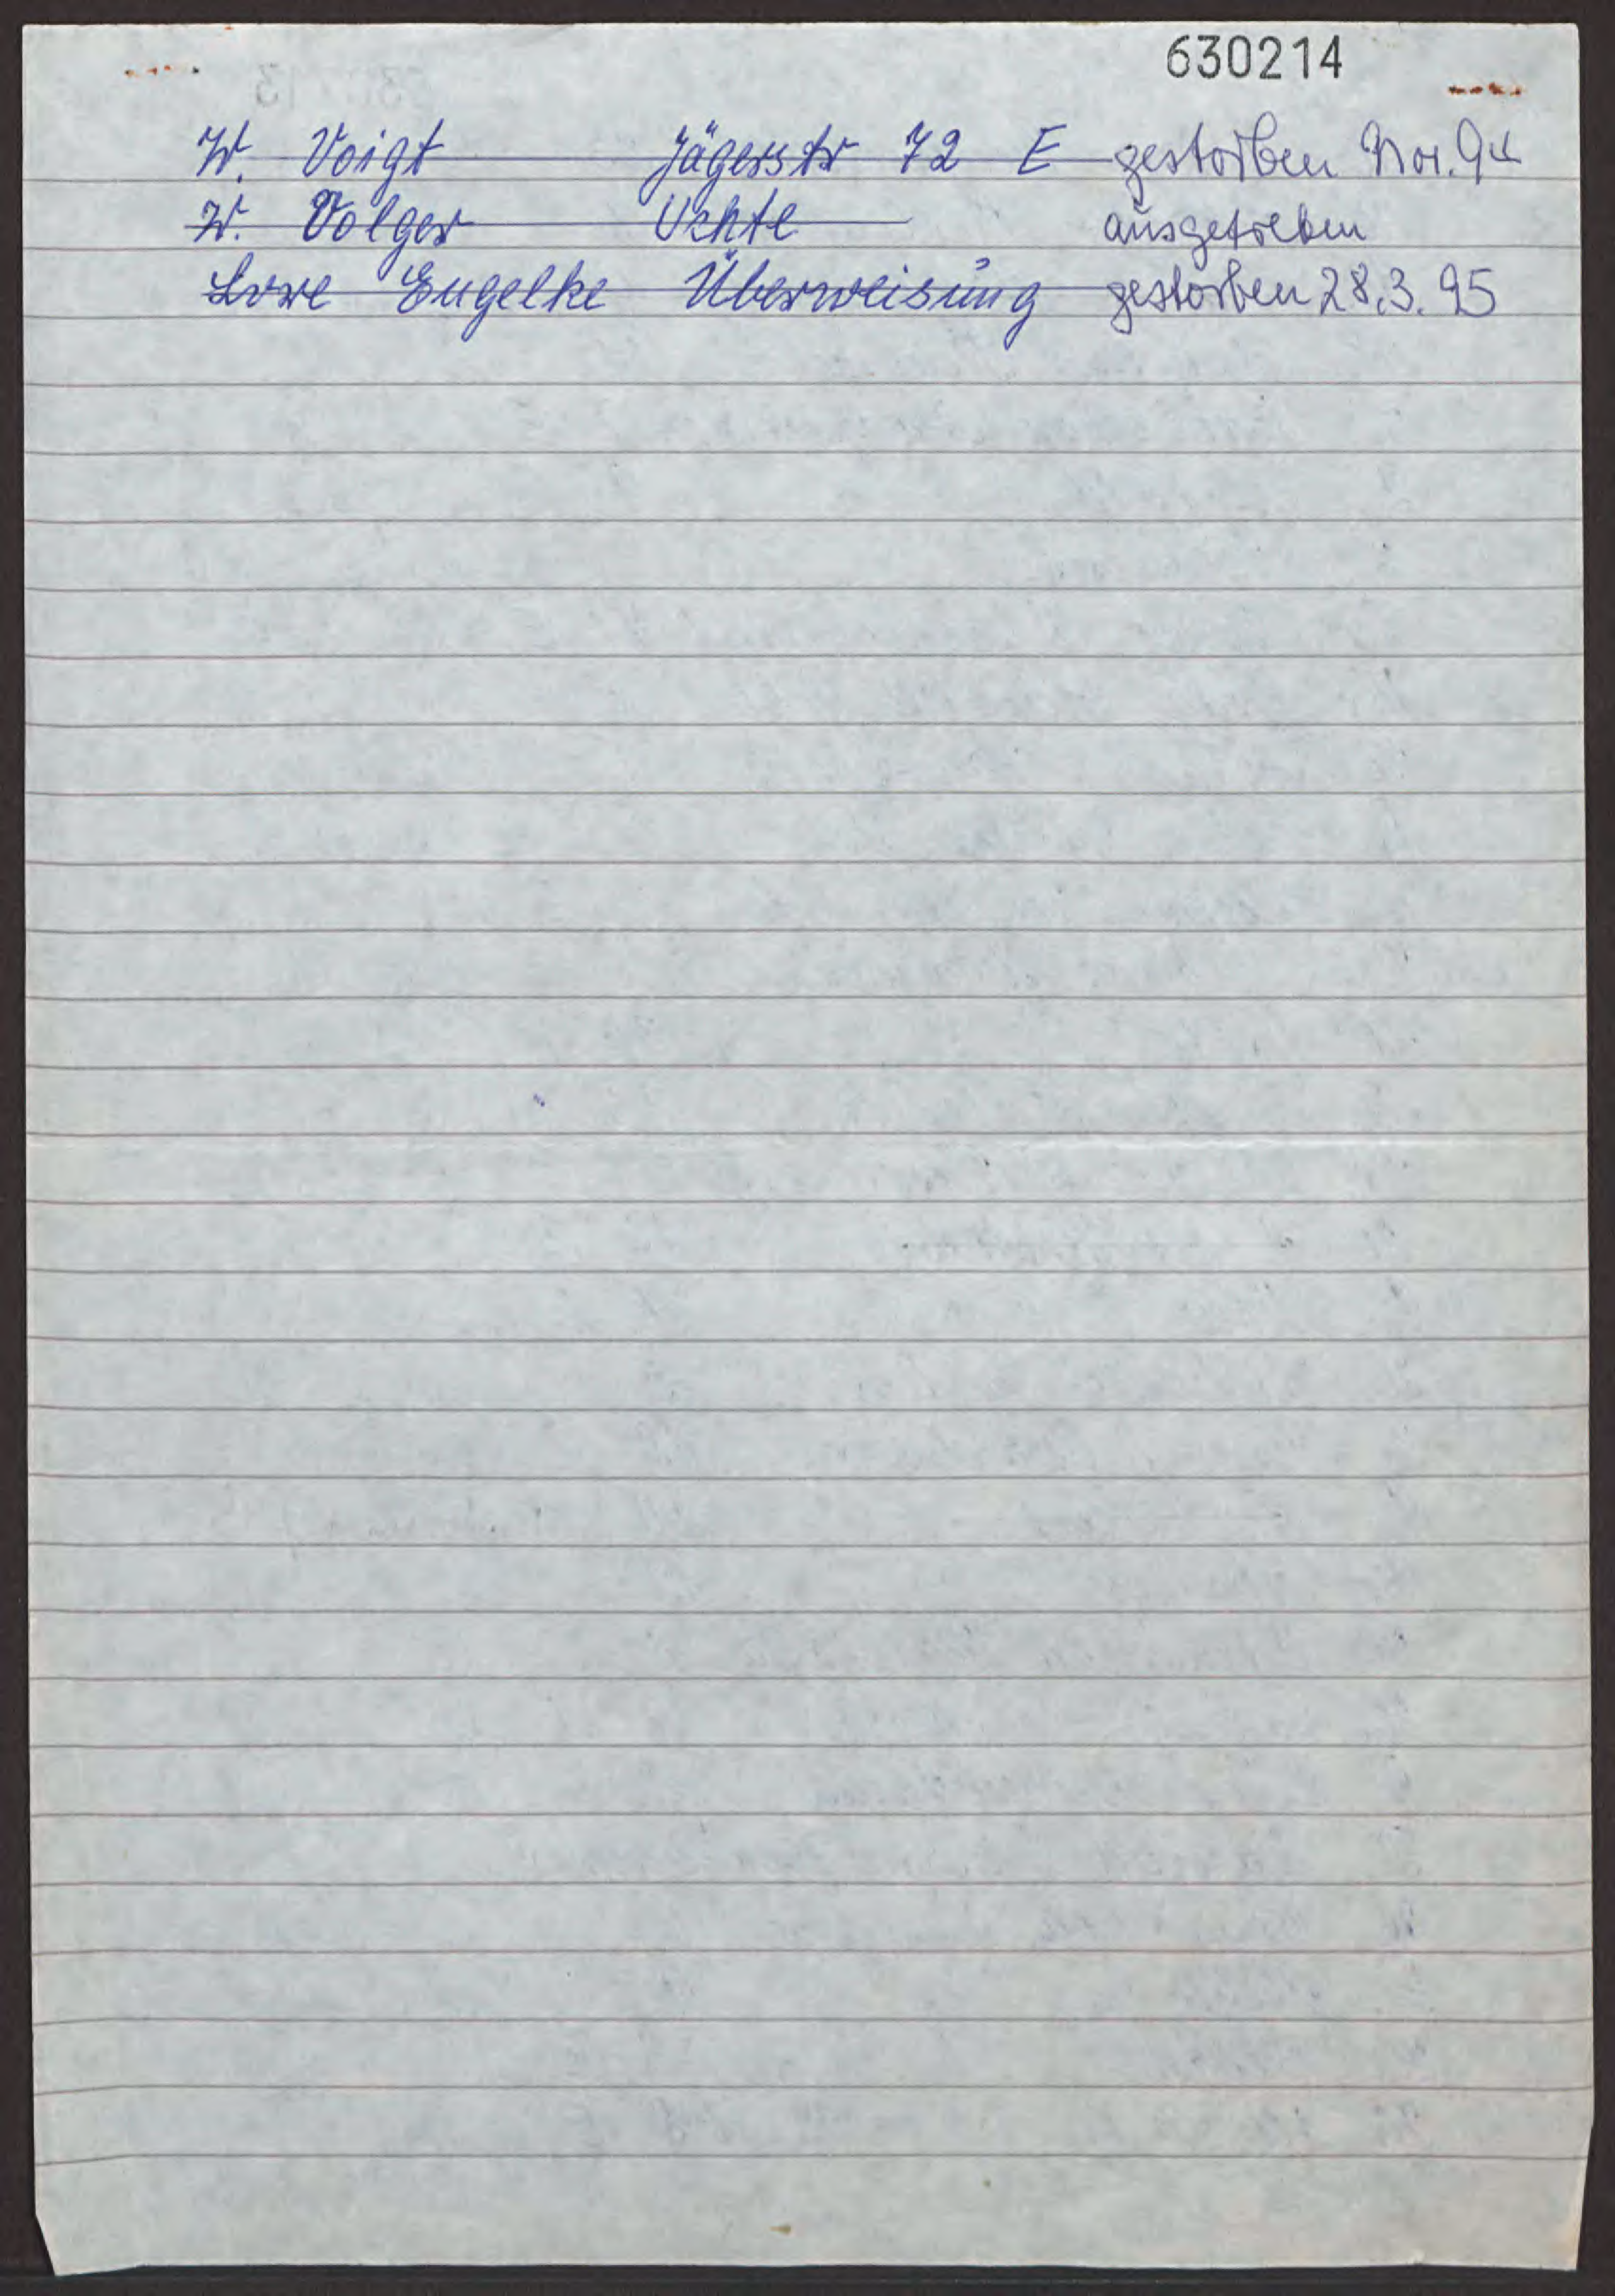 630214
W. Voigt Jägerstr 72 E gestorben Nov. 94
W. Volger Uchte ausgetreten
Lore Engelke Überweisung gestorben 28.3.95